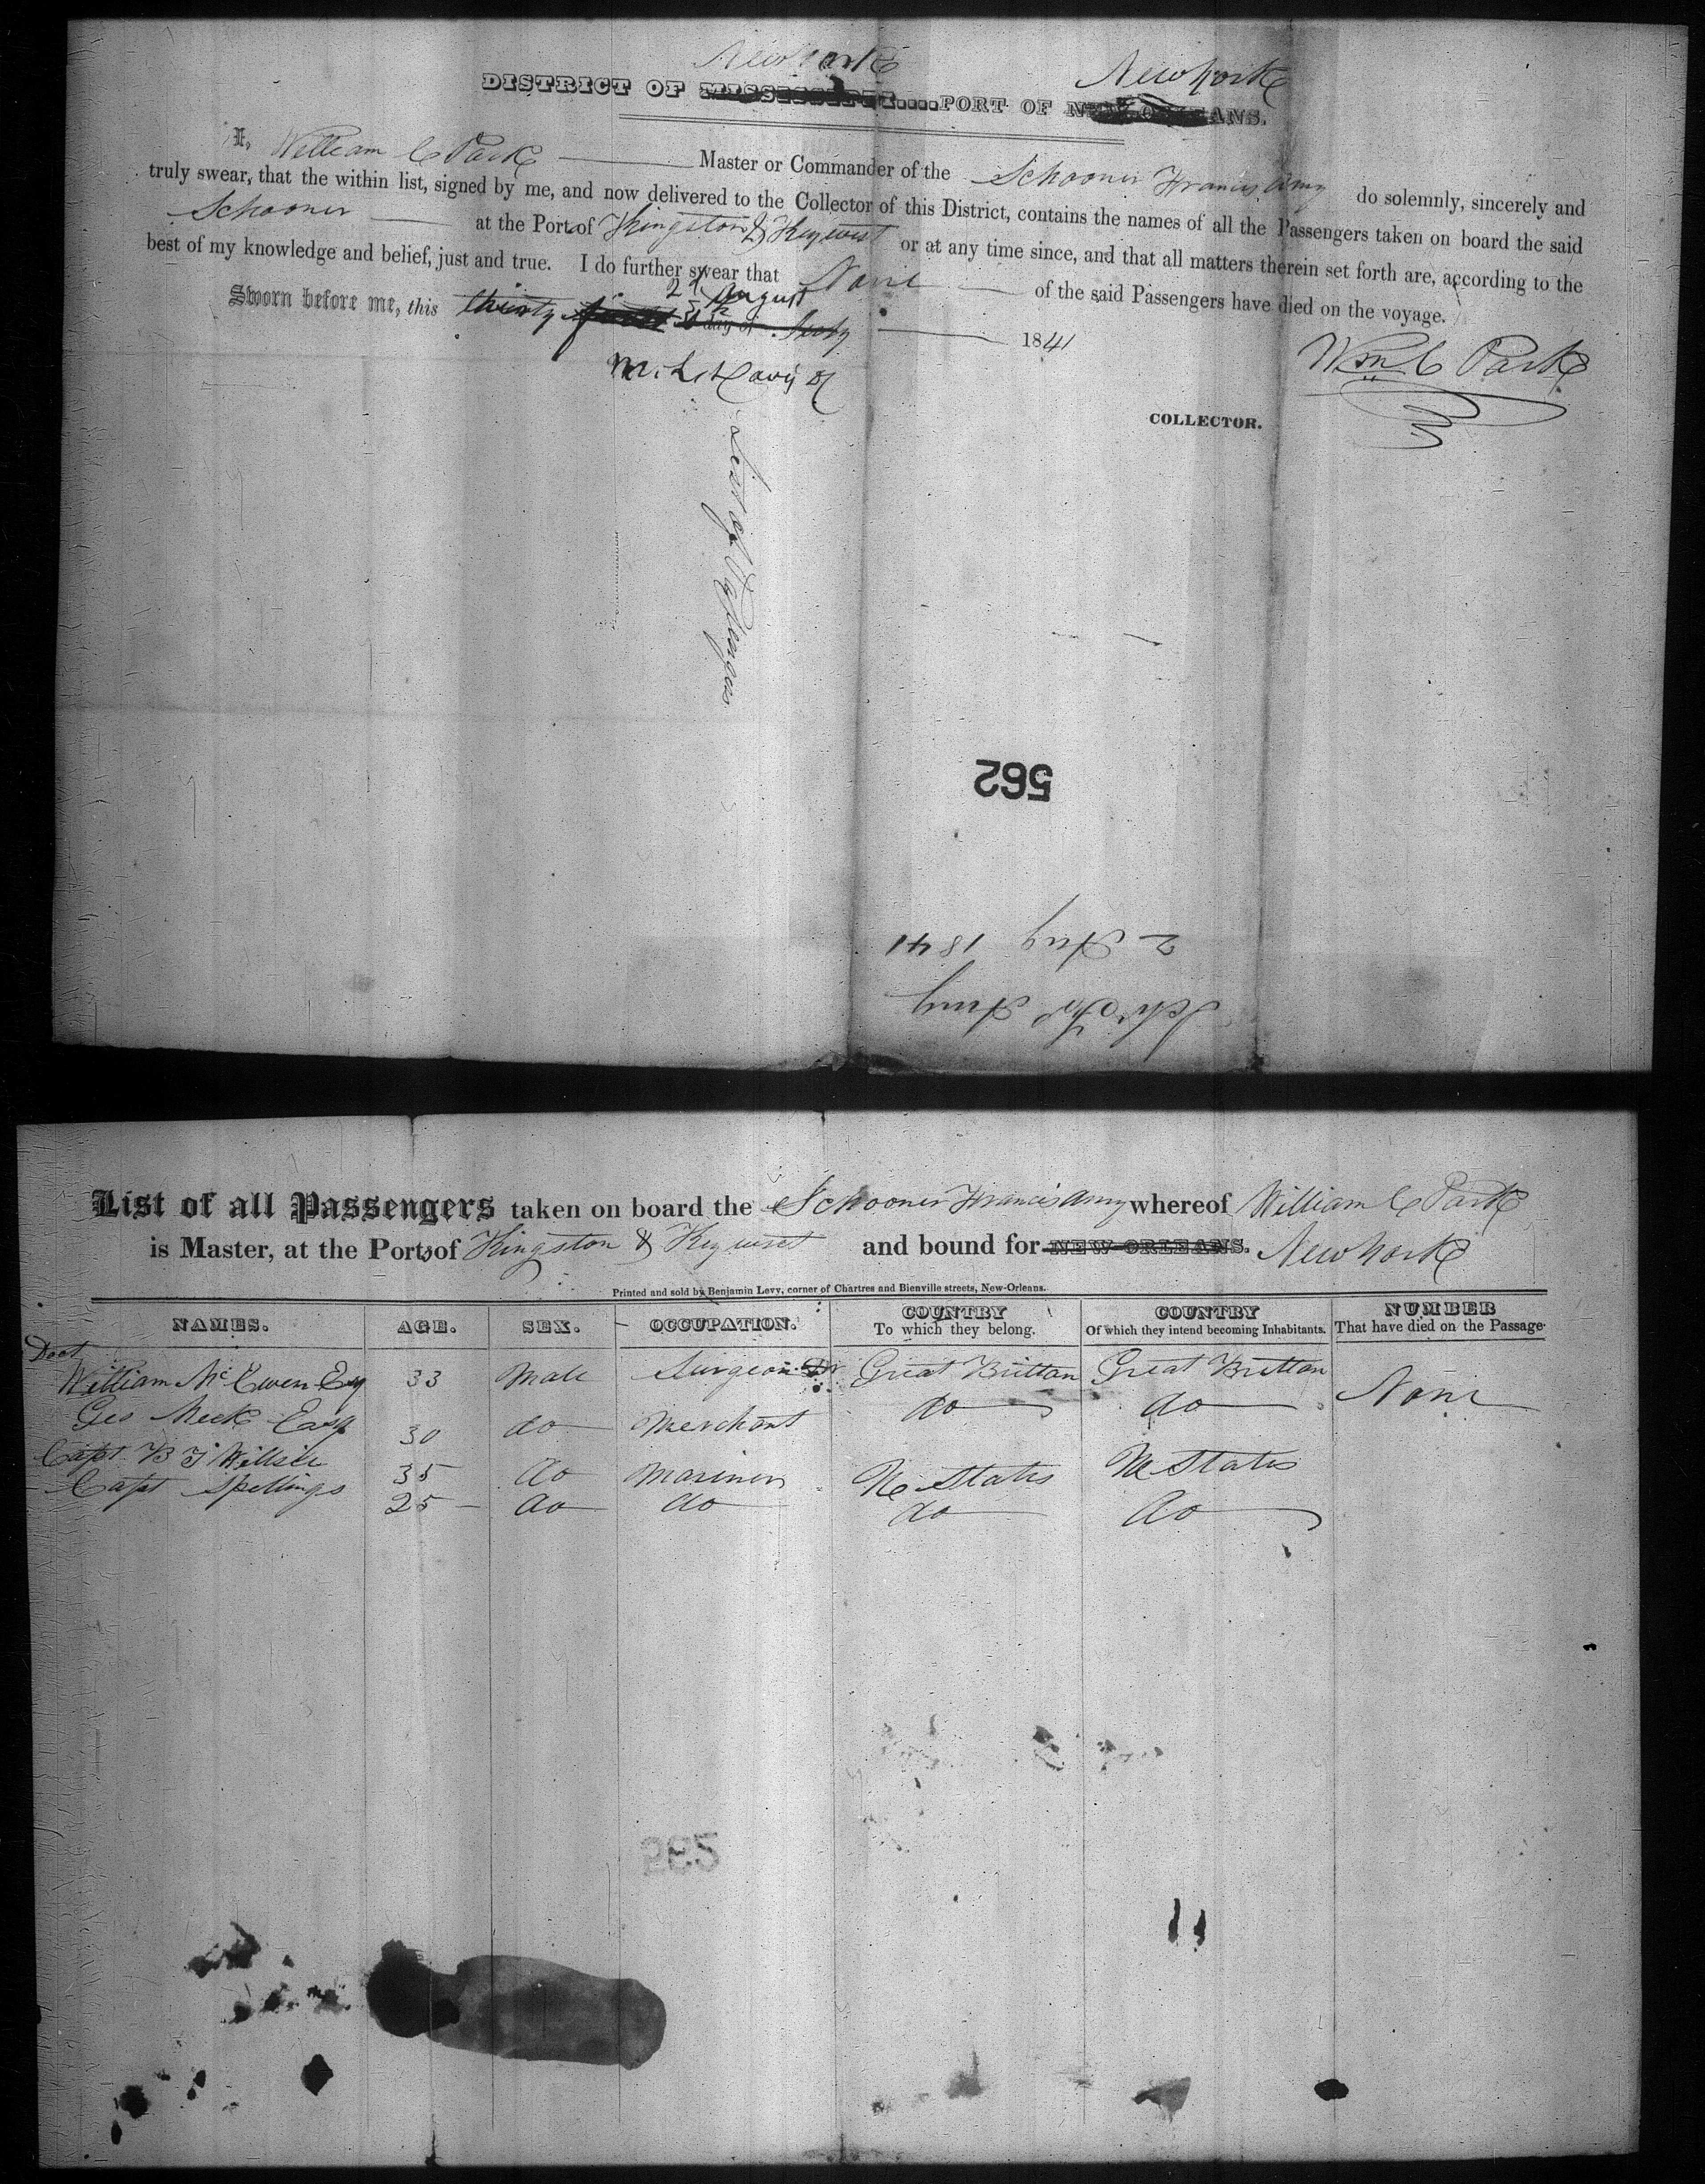 New York New York
DISTRICT OF MISSISSIPPI....PORT OF NEW-ORLEANS.
I, William C Park Master or Commander of the Schooner Francis Amy do solemnly, sincerely and
truly swear, that the within list, signed by me, and now delivered to the Collector of this District, contains the names of all the Passengers taken on board the said
Schooner at the Port of Kingston & Key west or at any time since, and that all matters therein set forth are, according to the
best of my knowledge and belief, just and true. I do further swear that None of the said Passengers have died on the voyage.
2d August
Sworn before me, this thirty first day of July 1841
Wm C Park
M. L. Davis
COLLECTOR.
List of Passengers
562
2 Aug 1841
Schr Frs Amy
List of all Passengers taken on board the Schooner Francis Amy whereof William C Park
is Master, at the Ports of Kingston & Key west and bound for NEW-ORLEANS. New York
Printed and sold by Benjamin Levy, corner of Chartres and Bienville streets, New-Orleans.
NAMES. AGE. SEX. OCCUPATION. COUNTRY To which they belong. COUNTRY Of which they intend becoming Inhabitants. NUMBER That have died on the Passage.
Doct
William McEwen Esq 33 Male Surgeon Great Brittan Great Brittan None
Geo Meek Esqr 30 do Merchant do do
Capt B T Willsie 35 do Mariner U States U States
Capt Spellings 25 do do do do
562